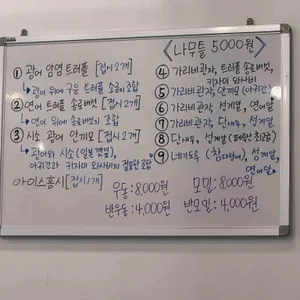 ① 광어 암염 트러플 [접시 2개]
↳광어 위에 구운 트러플 소금의 조합
② 연어 트러플 송로버섯 [접시 2개]
↳연어 위에 송로버섯의 조합
③ 시소 광어 안끼모 [접시 2개]
↳광어와 시소(일본깻잎),
아귀간과 키자미 와사비의 절묘한 조합
아이스홍시 [접시 1개]
<나무틀 5000원>
④ 가리비관자, 트러플 송로버섯,
키자미 와사비
⑤ 가리비관자, 안끼모 (아귀간)
⑥ 가리비관자, 성게알, 연어알
⑦ 가리비관자, 단새우, 성게알
⑧ 단새우, 성게알
⑨ 네기도로 (참다랑어), 성게알,
연어알
우동 : 8,000원
반우동 : 4,000원
모밀 : 8,000원
반모밀 : 4,000원